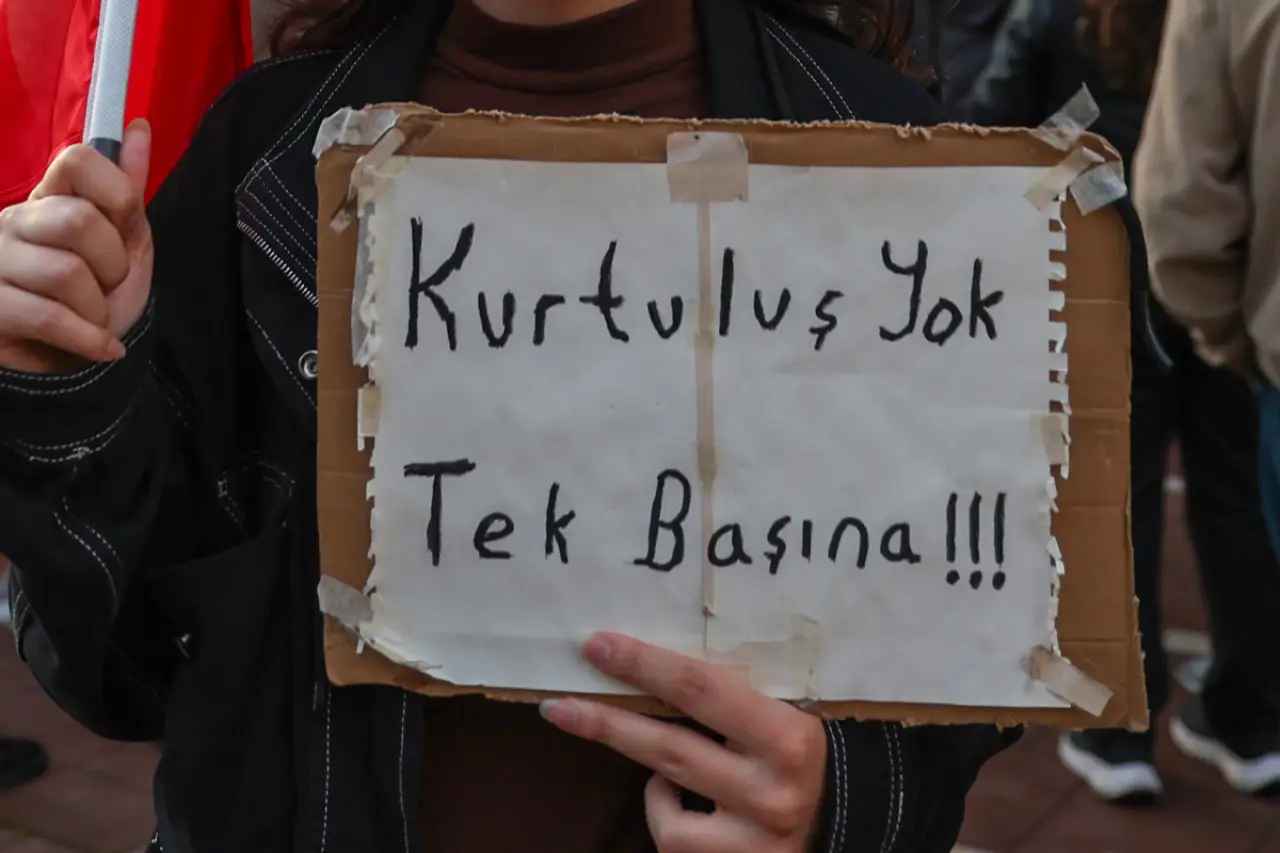 Kurtuluş Yok
Tek Başına!!!